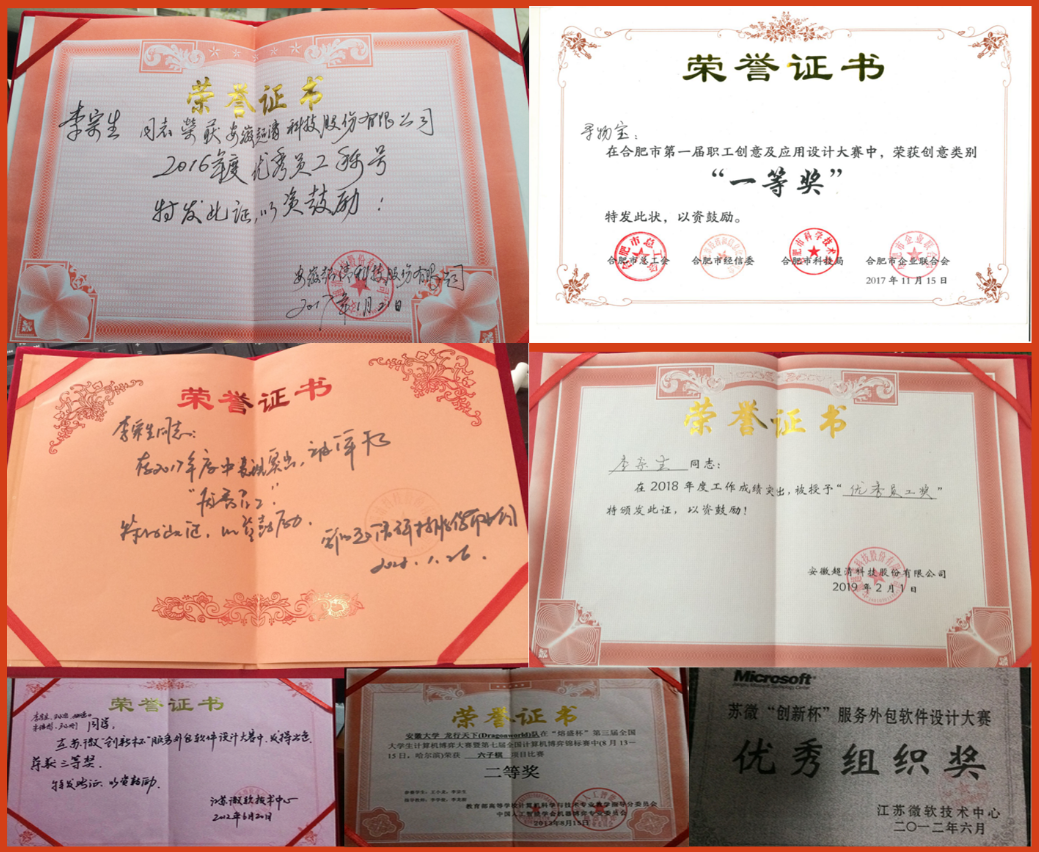 荣誉证书
李宗生 同志荣获安徽超清科技股份有限公司
2016年度优秀员工称号
特发此证,以资鼓励!
安徽超清科技股份有限公司
2017年1月21日
荣誉证书
寻物宝:
在合肥市第一届职工创意及应用设计大赛中,荣获创意类别
“一等奖”
特发此状,以资鼓励。
合肥市总工会 合肥市经信委 合肥市科技局 合肥市企业联合会
2017年11月15日
荣誉证书
李宗生同志:
在2017年度中表现突出,被评为
“优秀员工”
特发此证,以资鼓励.
2018.1.26.
荣誉证书
李宗生 同志:
在 2018 年度工作成绩突出,被授予“优秀员工奖”
特颁发此证,以资鼓励!
安徽超清科技股份有限公司
2019 年 2 月 1 日
荣誉证书
同学:
在苏微“创新杯”服务外包软件设计大赛中,成绩出色
荣获三等奖.
特发此证,以资鼓励.
江苏微软技术中心
2012年6月20日
荣誉证书
安徽大学 龙行天下(Dragonworld)队在“塔盛杯”第三届全国
大学生计算机博弈大赛暨第七届全国计算机博弈锦标赛中(8月13-
15日,哈尔滨)荣获 六子棋 项目比赛
二等奖
教育部高等学校计算机科学与技术专业教学指导分委员会
中国人工智能学会机器博弈专业委员会
2013年8月15日
Microsoft
苏微“创新杯”服务外包软件设计大赛
优秀组织奖
江苏微软技术中心
二〇一二年六月